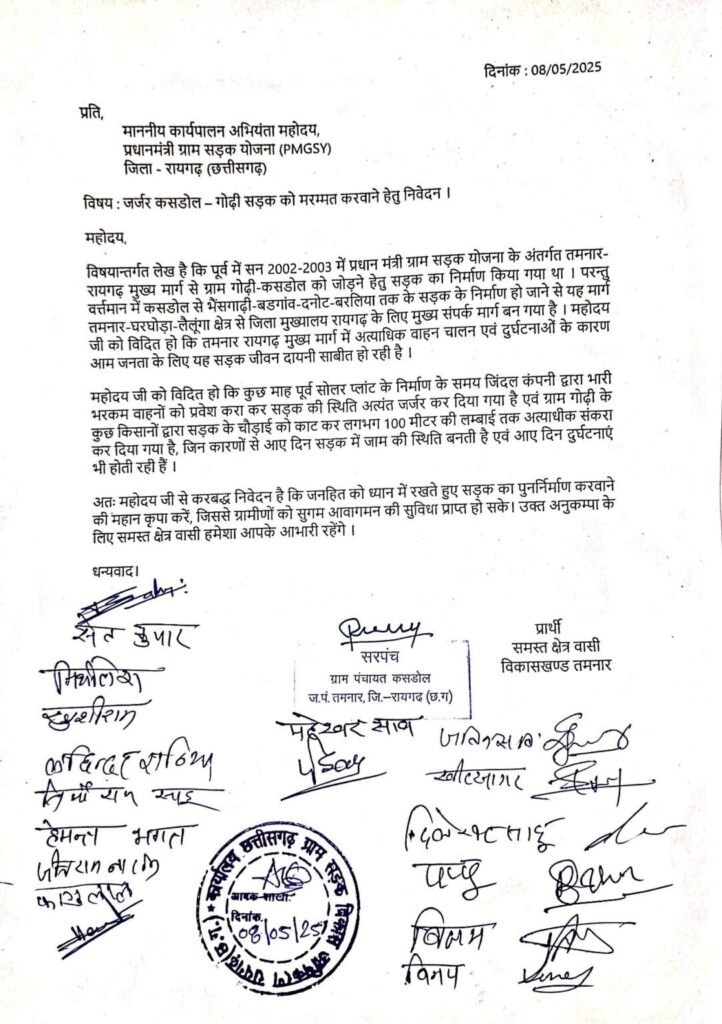 दिनांक : 08/05/2025
प्रति,
माननीय कार्यपालन अभियंता महोदय,
प्रधानमंत्री ग्राम सड़क योजना (PMGSY)
जिला - रायगढ़ (छत्तीसगढ़)
विषय : जर्जर कसडोल – गोढ़ी सड़क को मरम्मत करवाने हेतु निवेदन ।
महोदय,
विषयान्तर्गत लेख है कि पूर्व में सन 2002-2003 में प्रधान मंत्री ग्राम सड़क योजना के अंतर्गत तमनार-
रायगढ़ मुख्य मार्ग से ग्राम गोढ़ी-कसडोल को जोड़ने हेतु सड़क का निर्माण किया गया था । परन्तु
वर्त्तमान में कसडोल से भैंसगाढ़ी-बडगांव-दनोट-बरलिया तक के सड़क के निर्माण हो जाने से यह मार्ग
तमनार-घरघोड़ा-लैलूंगा क्षेत्र से जिला मुख्यालय रायगढ़ के लिए मुख्य संपर्क मार्ग बन गया है । महोदय
जी को विदित हो कि तमनार रायगढ़ मुख्य मार्ग में अत्याधिक वाहन चालन एवं दुर्घटनाओं के कारण
आम जनता के लिए यह सड़क जीवन दायनी साबीत हो रही है ।
महोदय जी को विदित हो कि कुछ माह पूर्व सोलर प्लांट के निर्माण के समय जिंदल कंपनी द्वारा भारी
भरकम वाहनों को प्रवेश करा कर सड़क की स्थिति अत्यंत जर्जर कर दिया गया है एवं ग्राम गोढ़ी के
कुछ किसानों द्वारा सड़क के चौड़ाई को काट कर लगभग 100 मीटर की लम्बाई तक अत्याधीक संकरा
कर दिया गया है, जिन कारणों से आए दिन सड़क में जाम की स्थिति बनती है एवं आए दिन दुर्घटनाएं
भी होती रही हैं ।
अतः महोदय जी से करबद्ध निवेदन है कि जनहित को ध्यान में रखते हुए सड़क का पुनर्निर्माण करवाने
की महान कृपा करें, जिससे ग्रामीणों को सुगम आवागमन की सुविधा प्राप्त हो सके। उक्त अनुकम्पा के
लिए समस्त क्षेत्र वासी हमेशा आपके आभारी रहेंगे ।
धन्यवाद।
प्रार्थी
समस्त क्षेत्र वासी
विकासखण्ड तमनार
सरपंच
ग्राम पंचायत कसडोल
ज.पं. तमनार, जि.–रायगढ़ (छ.ग)
कुमार
खुशीराम
महेश्वर साव
हेमन्त भगत
पप्पु
कार्यालय छत्तीसगढ़ ग्राम सड़क विकास अभिकरण रायगढ़ (छ.ग.)
आवक शाखा
दिनांक
08/05/25